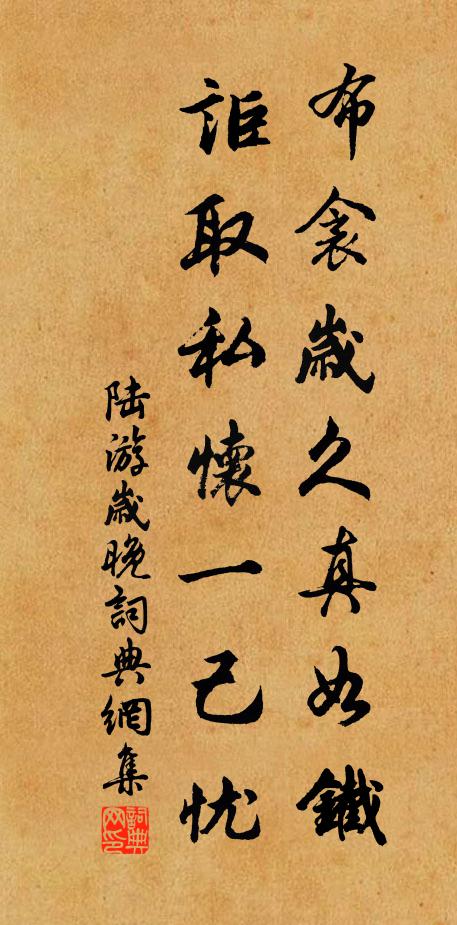 布衾歲久真如鐵
詎取私懷一己忧
陸游歲晚詞典網集
詞典网印